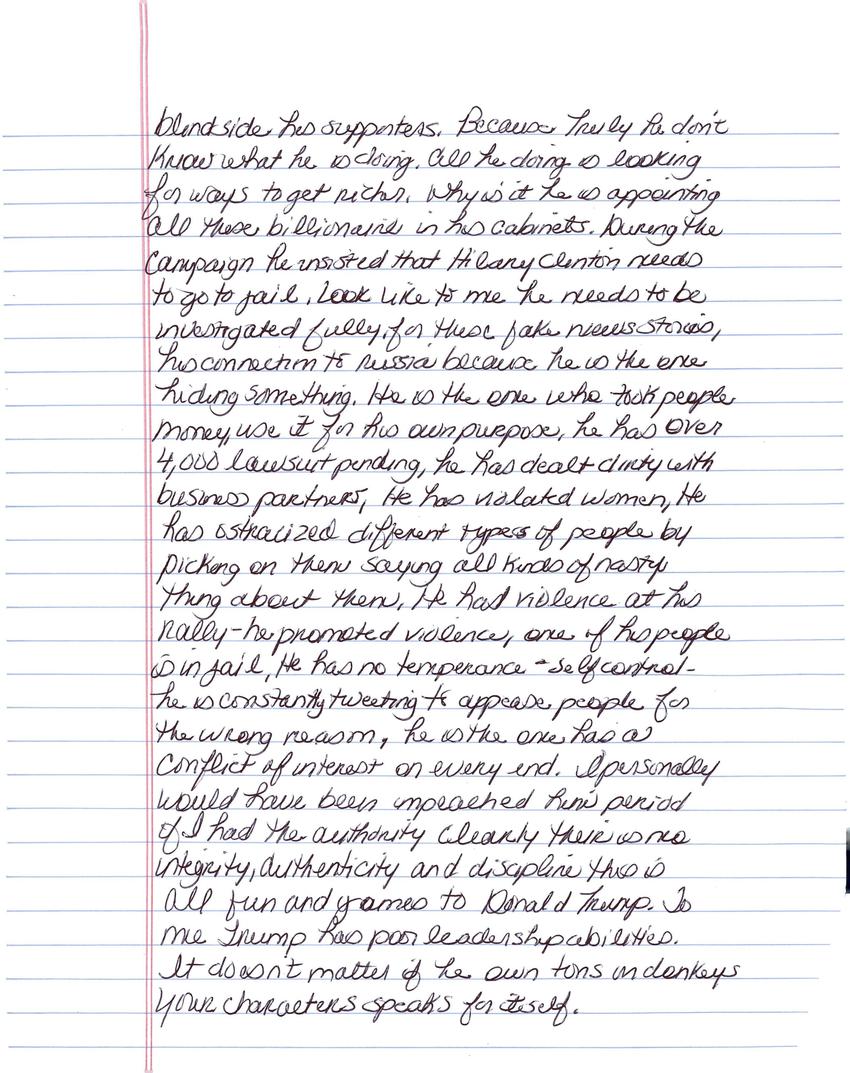 blindside his supporters. Because Truly he don't
Know what he is doing. All he doing is looking
for ways to get richer. Why is it he is appointing
all these billionaire in his cabinets. During the
Campaign he insisted that Hilary Clinton needs
to go to jail, Look Like to me he needs to be
investigated fully, for these fake news stories,
his connection to Russia because he is the one
hiding something. He is the one who took people
money, use it for his own purpose, he has over
4,000 lawsuit pending, he has dealt dirty with
business partners, He has violated women, He
has ostracized different types of people by
picking on them saying all kinds of nasty
thing about them. He had violence at his
rally-he promoted violence, one of his people
is in jail, He has no temperance - self control-
he is constantly tweeting to appease people for
the wrong reason, he is the one has a
conflict of interest on every end. I personally
would have been impeached him period
if I had the authority clearly their is no
integrity, authenticity and discipline this is
all fun and games to Donald Trump. To
me Trump has poor leadership abilities.
It doesn't matter if he own tons on donkeys
your characters speaks for itself.